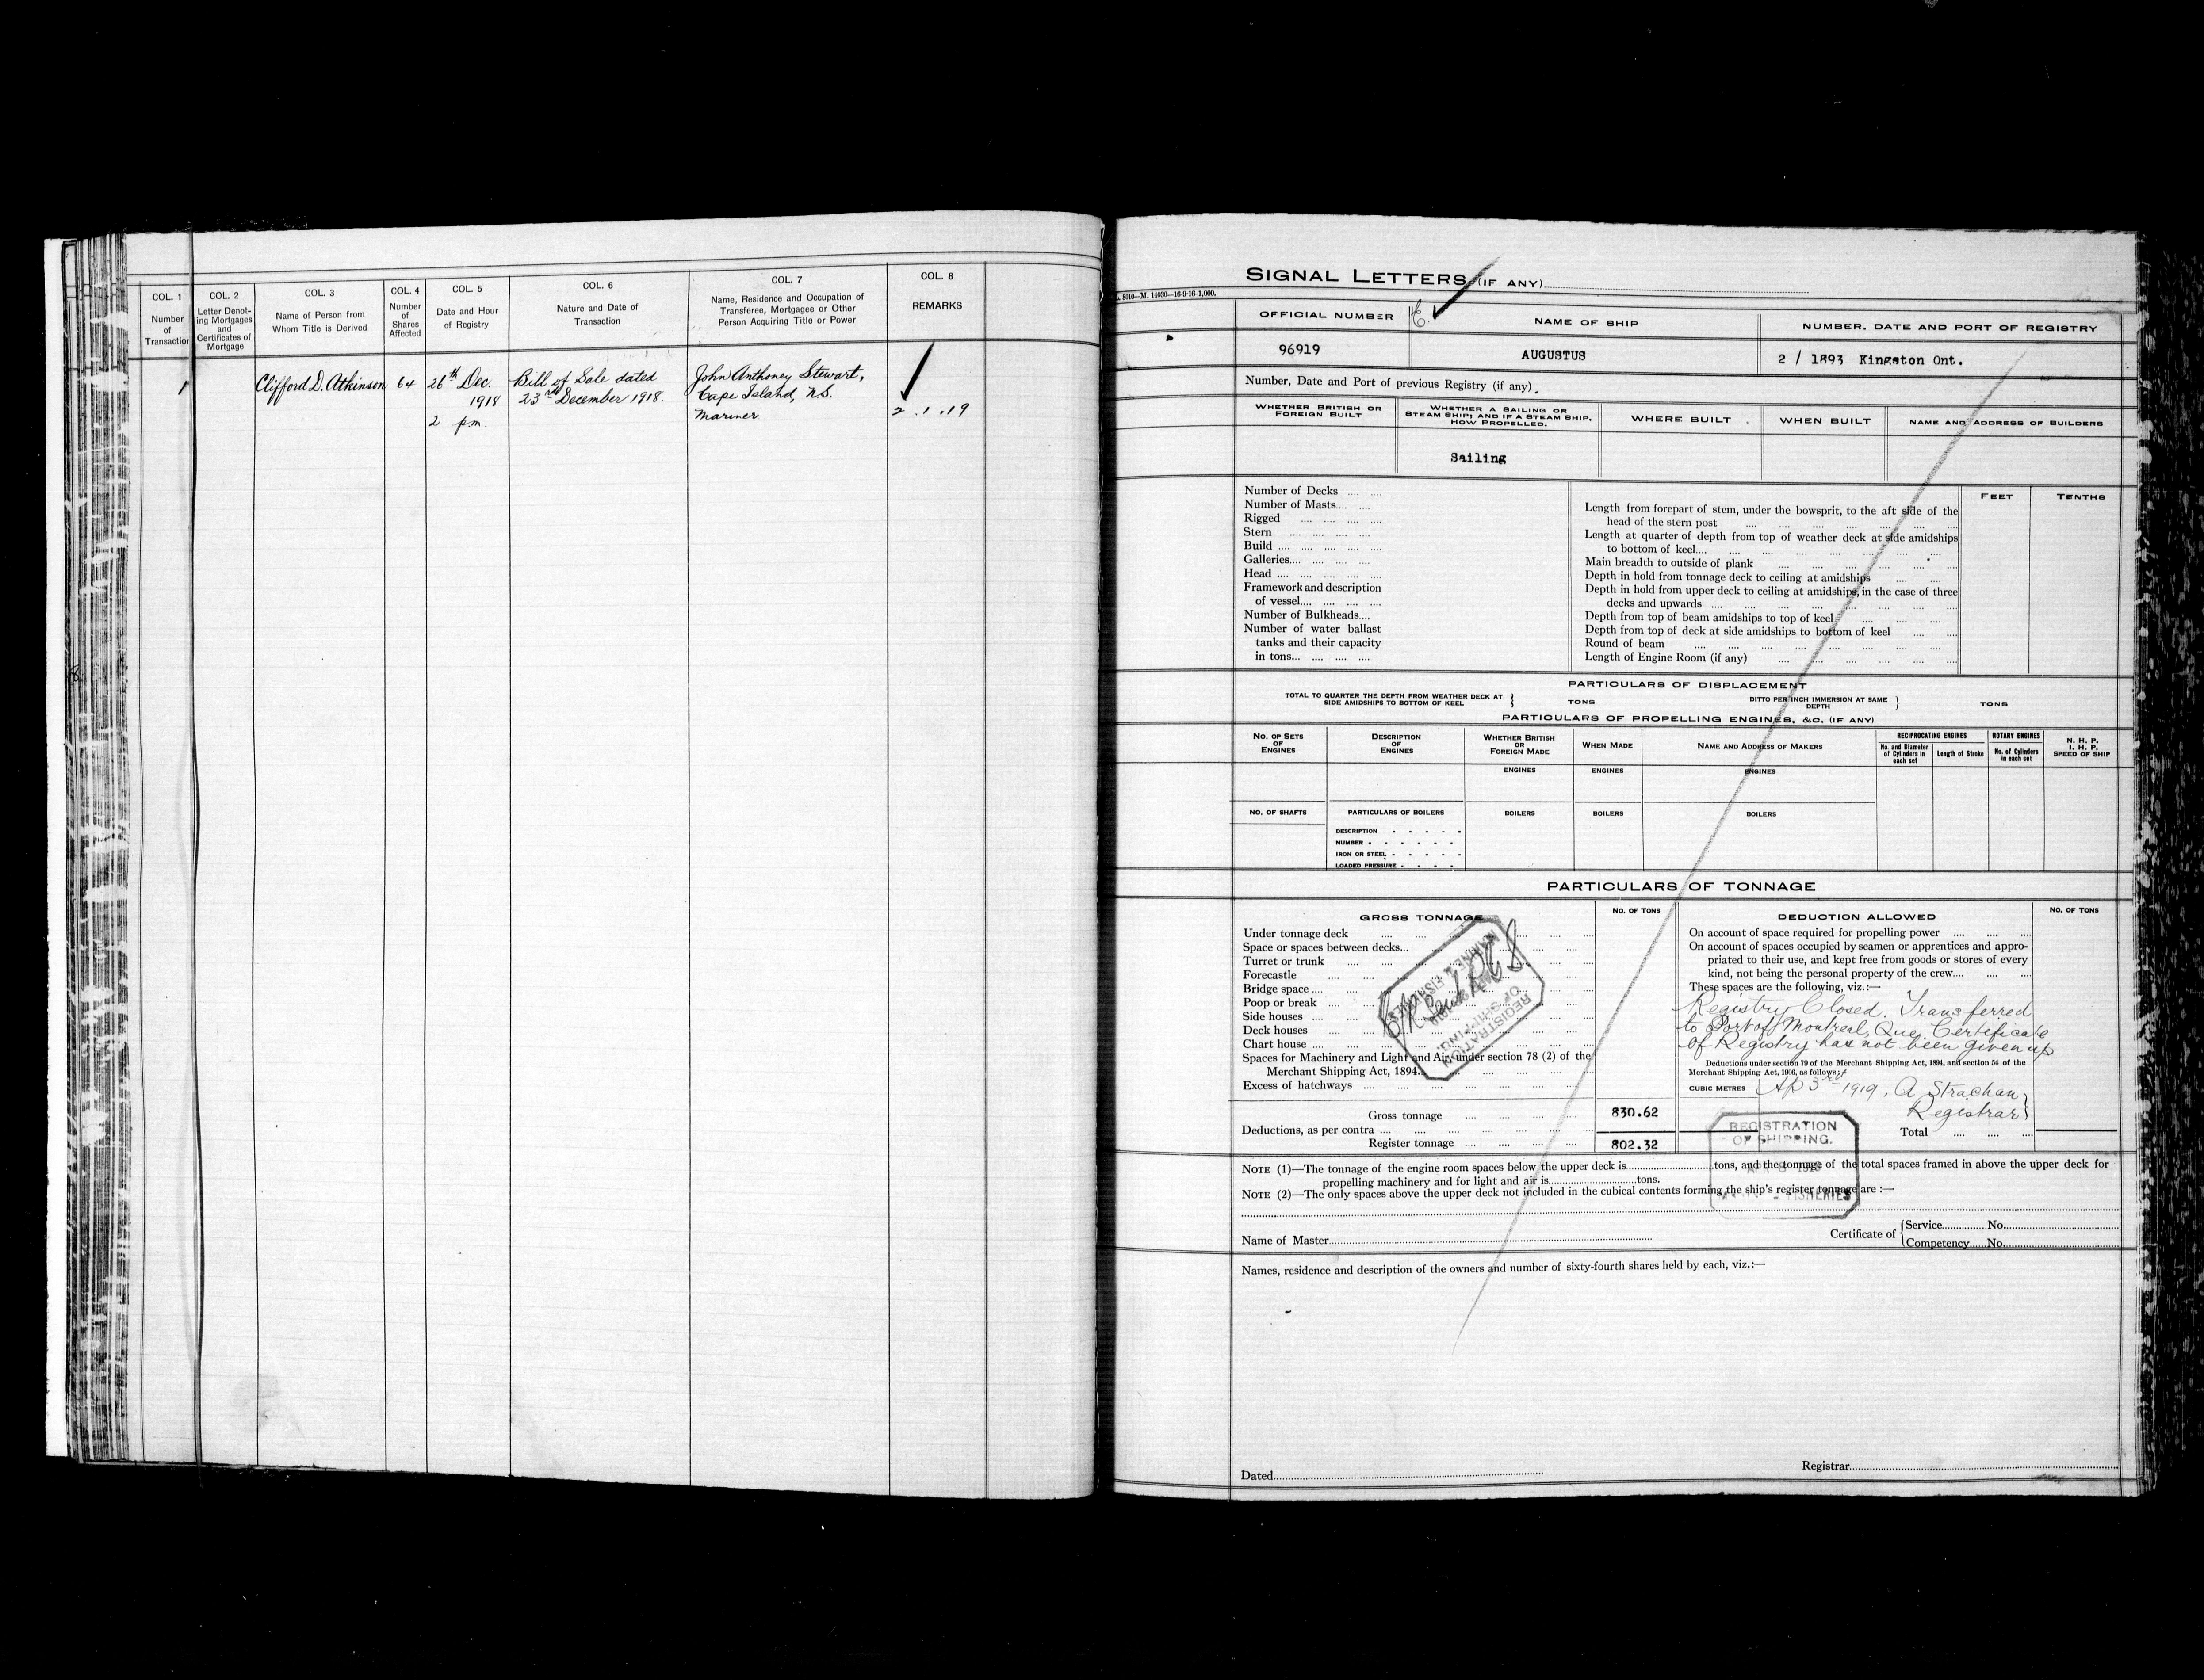 COL. 1
Number
of
Transaction
COL. 2
Letter Denot-
ing Mortgages
and
Certificates of
Mortgage
COL. 3
Name of Person from
Whom Title is Derived
COL. 4
Number
of
Shares
Affected
COL. 5
Date and Hour
of Registry
COL. 6
Nature and Date of
Transaction
COL. 7
Name, Residence and Occupation of
Transferee, Mortgagee or Other
Person Acquiring Title or Power
COL. 8
REMARKS
1
Clifford D. Atkinson
64
26th Dec.
1918
2 p.m.
Bill of Sale dated
23rd December 1918.
John Anthoney Stewart,
Cape Island, N.S.
Mariner
2.1.19
SIGNAL LETTERS (IF ANY)
8010—M. 14030—16-9-16-1,000.
OFFICIAL NUMBER
NAME OF SHIP
NUMBER, DATE AND PORT OF REGISTRY
96919
AUGUSTUS
2 / 1893 Kingston Ont.
Number, Date and Port of previous Registry (if any).
WHETHER BRITISH OR
FOREIGN BUILT
WHETHER A SAILING OR
STEAM SHIP; AND IF A STEAM SHIP,
HOW PROPELLED.
WHERE BUILT
WHEN BUILT
NAME AND ADDRESS OF BUILDERS
Sailing
Number of Decks
Number of Masts
Rigged
Stern
Build
Galleries
Head
Framework and description
of vessel
Number of Bulkheads
Number of water ballast
tanks and their capacity
in tons
FEET
TENTHS
Length from forepart of stem, under the bowsprit, to the aft side of the
head of the stern post
Length at quarter of depth from top of weather deck at side amidships
to bottom of keel
Main breadth to outside of plank
Depth in hold from tonnage deck to ceiling at amidships
Depth in hold from upper deck to ceiling at amidships, in the case of three
decks and upwards
Depth from top of beam amidships to top of keel
Depth from top of deck at side amidships to bottom of keel
Round of beam
Length of Engine Room (if any)
PARTICULARS OF DISPLACEMENT
TOTAL TO QUARTER THE DEPTH FROM WEATHER DECK AT
SIDE AMIDSHIPS TO BOTTOM OF KEEL
TONS
DITTO PER INCH IMMERSION AT SAME
DEPTH
TONS
PARTICULARS OF PROPELLING ENGINES, &C. (IF ANY)
NO. OF SETS
OF
ENGINES
DESCRIPTION
OF
ENGINES
WHETHER BRITISH
OR
FOREIGN MADE
WHEN MADE
NAME AND ADDRESS OF MAKERS
RECIPROCATING ENGINES
No. and Diameter
of Cylinders in
each set
Length of Stroke
ROTARY ENGINES
No. of Cylinders
in each set
N. H. P.
I. H. P.
SPEED OF SHIP
ENGINES
ENGINES
ENGINES
NO. OF SHAFTS
PARTICULARS OF BOILERS
BOILERS
BOILERS
BOILERS
DESCRIPTION
NUMBER
IRON OR STEEL
LOADED PRESSURE
PARTICULARS OF TONNAGE
GROSS TONNAGE
NO. OF TONS
Under tonnage deck
Space or spaces between decks
Turret or trunk
Forecastle
Bridge space
Poop or break
Side houses
Deck houses
Chart house
Spaces for Machinery and Light and Air, under section 78 (2) of the
Merchant Shipping Act, 1894
Excess of hatchways
Gross tonnage
830.62
Deductions, as per contra
Register tonnage
802.32
REGISTRATION
OF SHIPPING.
MARINE & FISHERIES
DEDUCTION ALLOWED
NO. OF TONS
On account of space required for propelling power
On account of spaces occupied by seamen or apprentices and appro-
priated to their use, and kept free from goods or stores of every
kind, not being the personal property of the crew
These spaces are the following, viz.:—
Registry Closed. Transferred
to Port of Montreal, Que. Certificate
of Registry has not been given up
Deductions under section 79 of the Merchant Shipping Act, 1894, and section 54 of the
Merchant Shipping Act, 1906, as follows:
CUBIC METRES
Ap 3rd 1919. A Strachan,
Registrar
Total
REGISTRATION
OF SHIPPING.
FISHERIES
NOTE (1)—The tonnage of the engine room spaces below the upper deck is tons, and the tonnage of the total spaces framed in above the upper deck for
propelling machinery and for light and air is tons.
NOTE (2)—The only spaces above the upper deck not included in the cubical contents forming the ship's register tonnage are :—
Name of Master
Certificate of
Service No.
Competency No.
Names, residence and description of the owners and number of sixty-fourth shares held by each, viz.:—
Dated
Registrar